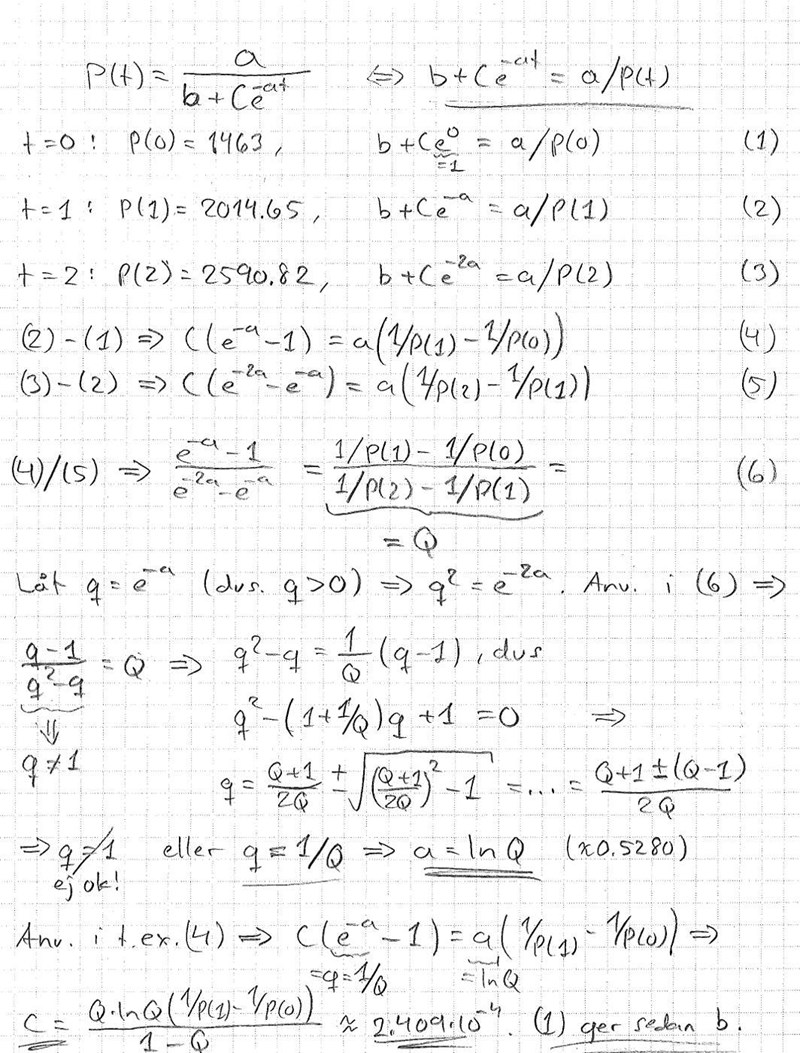 P(t) = a / (b + Ce^-at) ⇔ b + Ce^-at = a/P(t)
t=0: P(0) = 1463, b + Ce^0 = a/P(0) (1)
=1
t=1: P(1) = 2014.65, b + Ce^-a = a/P(1) (2)
t=2: P(2) = 2590.82, b + Ce^-2a = a/P(2) (3)
(2)-(1) ⇒ C(e^-a - 1) = a(1/P(1) - 1/P(0)) (4)
(3)-(2) ⇒ C(e^-2a - e^-a) = a(1/P(2) - 1/P(1)) (5)
(4)/(5) ⇒ (e^-a - 1) / (e^-2a - e^-a) = (1/P(1) - 1/P(0)) / (1/P(2) - 1/P(1)) = (6)
= Q
Låt q = e^-a (dvs. q>0) ⇒ q² = e^-2a. Anv. i (6) ⇒
(q-1) / (q²-q) = Q ⇒ q² - q = 1/Q (q-1), dvs
⇓ q² - (1+1/Q)q + 1 = 0 ⇒
q≠1 q = (Q+1)/2Q ± √(((Q+1)/2Q)² - 1) = ... = (Q+1 ± (Q-1)) / 2Q
⇒ q=1 eller q = 1/Q ⇒ a = ln Q (≈0.5280)
ej ok!
Anv. i t.ex. (4) ⇒ C(e^-a - 1) = a(1/P(1) - 1/P(0)) ⇒
=q=1/Q =lnQ
C = Q·lnQ(1/P(1) - 1/P(0)) / (1-Q) ≈ 2.409·10^-4. (1) ger sedan b.